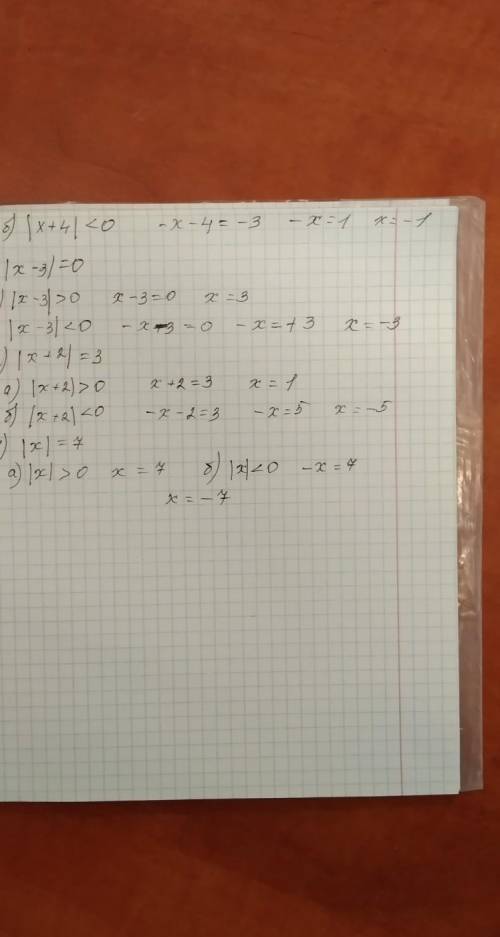 б) |x+4|<0 -x-4=-3 -x=1 x=-1
|x-3|=0
) |x-3|>0 x-3=0 x=3
|x-3|<0 -x-3=0 -x=+3 x=-3
) |x+2|=3
а) |x+2)>0 x+2=3 x=1
б) |x+2|<0 -x-2=3 -x=5 x=-5
) |x|=7
а) |x|>0 x=7 б) |x|<0 -x=7
x=-7